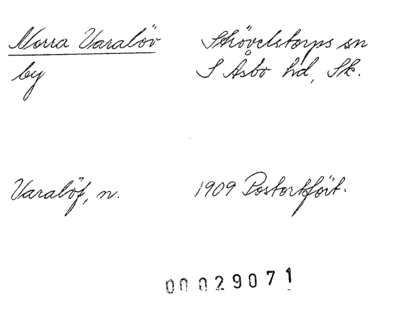 Norra Varalöv
Strövelstorps sn
by
S Åsbo hd, Sk.
Varalöf, n.
1909 Postortfört.
00029071